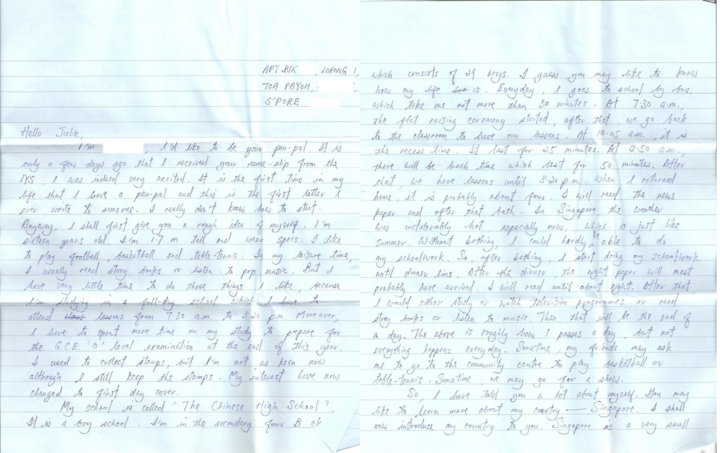 APT BLK , LORONG 1,
TOA PAYOH,
S'PORE
Hello Julie,
I'm I'd like to be your pen-pal. It is
only a few days ago that I received your name-slip from the
IYS, I was indeed very excited. It is the first time in my
life that I have a pen-pal and this is the first letter I
ever write to someone. I really don't know how to start.
Anyway, I shall first give you a rough idea of myself. I'm
sixteen years old. I'm 1.7 m tall and wear specs. I like
to play football, basketball and table-tennis. In my leisure time,
I usually read story books or listen to pop music. But I
have very little time to do these things I like, because
I'm studying in a full-day school which I have to
attend lessons from 7.30 a.m. to 3.20 p.m. Moreover,
I have to spent more time on my study to prepare for
the G.C.E 'O' level examination at the end of this year.
I used to collect stamps, but I'm not as keen now
although I still keep the stamps. My interest have now
changed to first day cover.
My school is called "The Chinese High School".
It is a boy school. I'm in the secondary four B of
which consists of 29 boys. I guess you may like to know
how my life is. Everyday, I goes to school by bus,
which take me not more than 30 minutes. At 7.30 a.m.
the flat raising ceremony started, after that, we go back
to the classroom to have our lessons. At 10.05 a.m., it is
the recess time. It last for 25 minutes. At 0.50 a.m.
there will be lunch time which last for 50 minutes. After
that we have lessons until 3.20 p.m. When I returned
home it is probably about four. I will read the news
paper and after that bath. In Singapore the weather
was unfavorably hot especially now, which is just like
summer. Without bathing, I could hardly able to do
my schoolwork. So, after bathing, I start doing my schoolwork
until dinner time. After the dinner the night paper will most
probably have arrived. I will read until about eight. After that
I would either study or watch television programmes or read
story books or listen to music. Then that will be the end of
a day. The above is roughly how I passes a day, but not
everything happens everyday. Sometime, my friends may ask
me to go to the community centre to play basketball or
table-tennis. Sometime, we may go for a show.
So, I have told you a lot about myself. You may
like to learn more about my country — Singapore. I shall
now introduce my country to you. Singapore is a very small